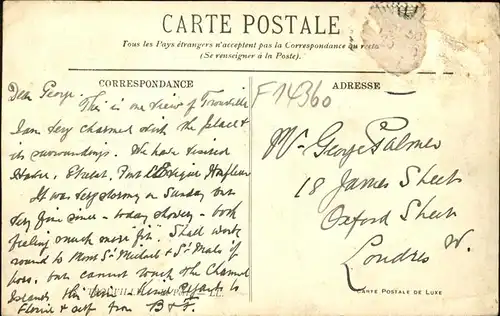 CARTE POSTALE
Tous les Pays étrangers n'acceptent pas la Correspondance au recto
(Se renseigner à la Poste).
CORRESPONDANCE
Dear George.
This is one view of Trouville
I am very charmed with the place &
its surroundings. We have visited
Havre, Etretat, Honfleur
It was very stormy on Sunday but
very fine since - today showery - both
feeling much more "fit". Shall work
round to Mont St Michel & St Malo if
poss. but cannot reach the Channel
Islands this time. Kind regards to
Florrie & self from B & F.
ADRESSE
F 14360
Mr George Palmer
18 James Street
Oxford Street
Londres W.
CARTE POSTALE DE LUXE